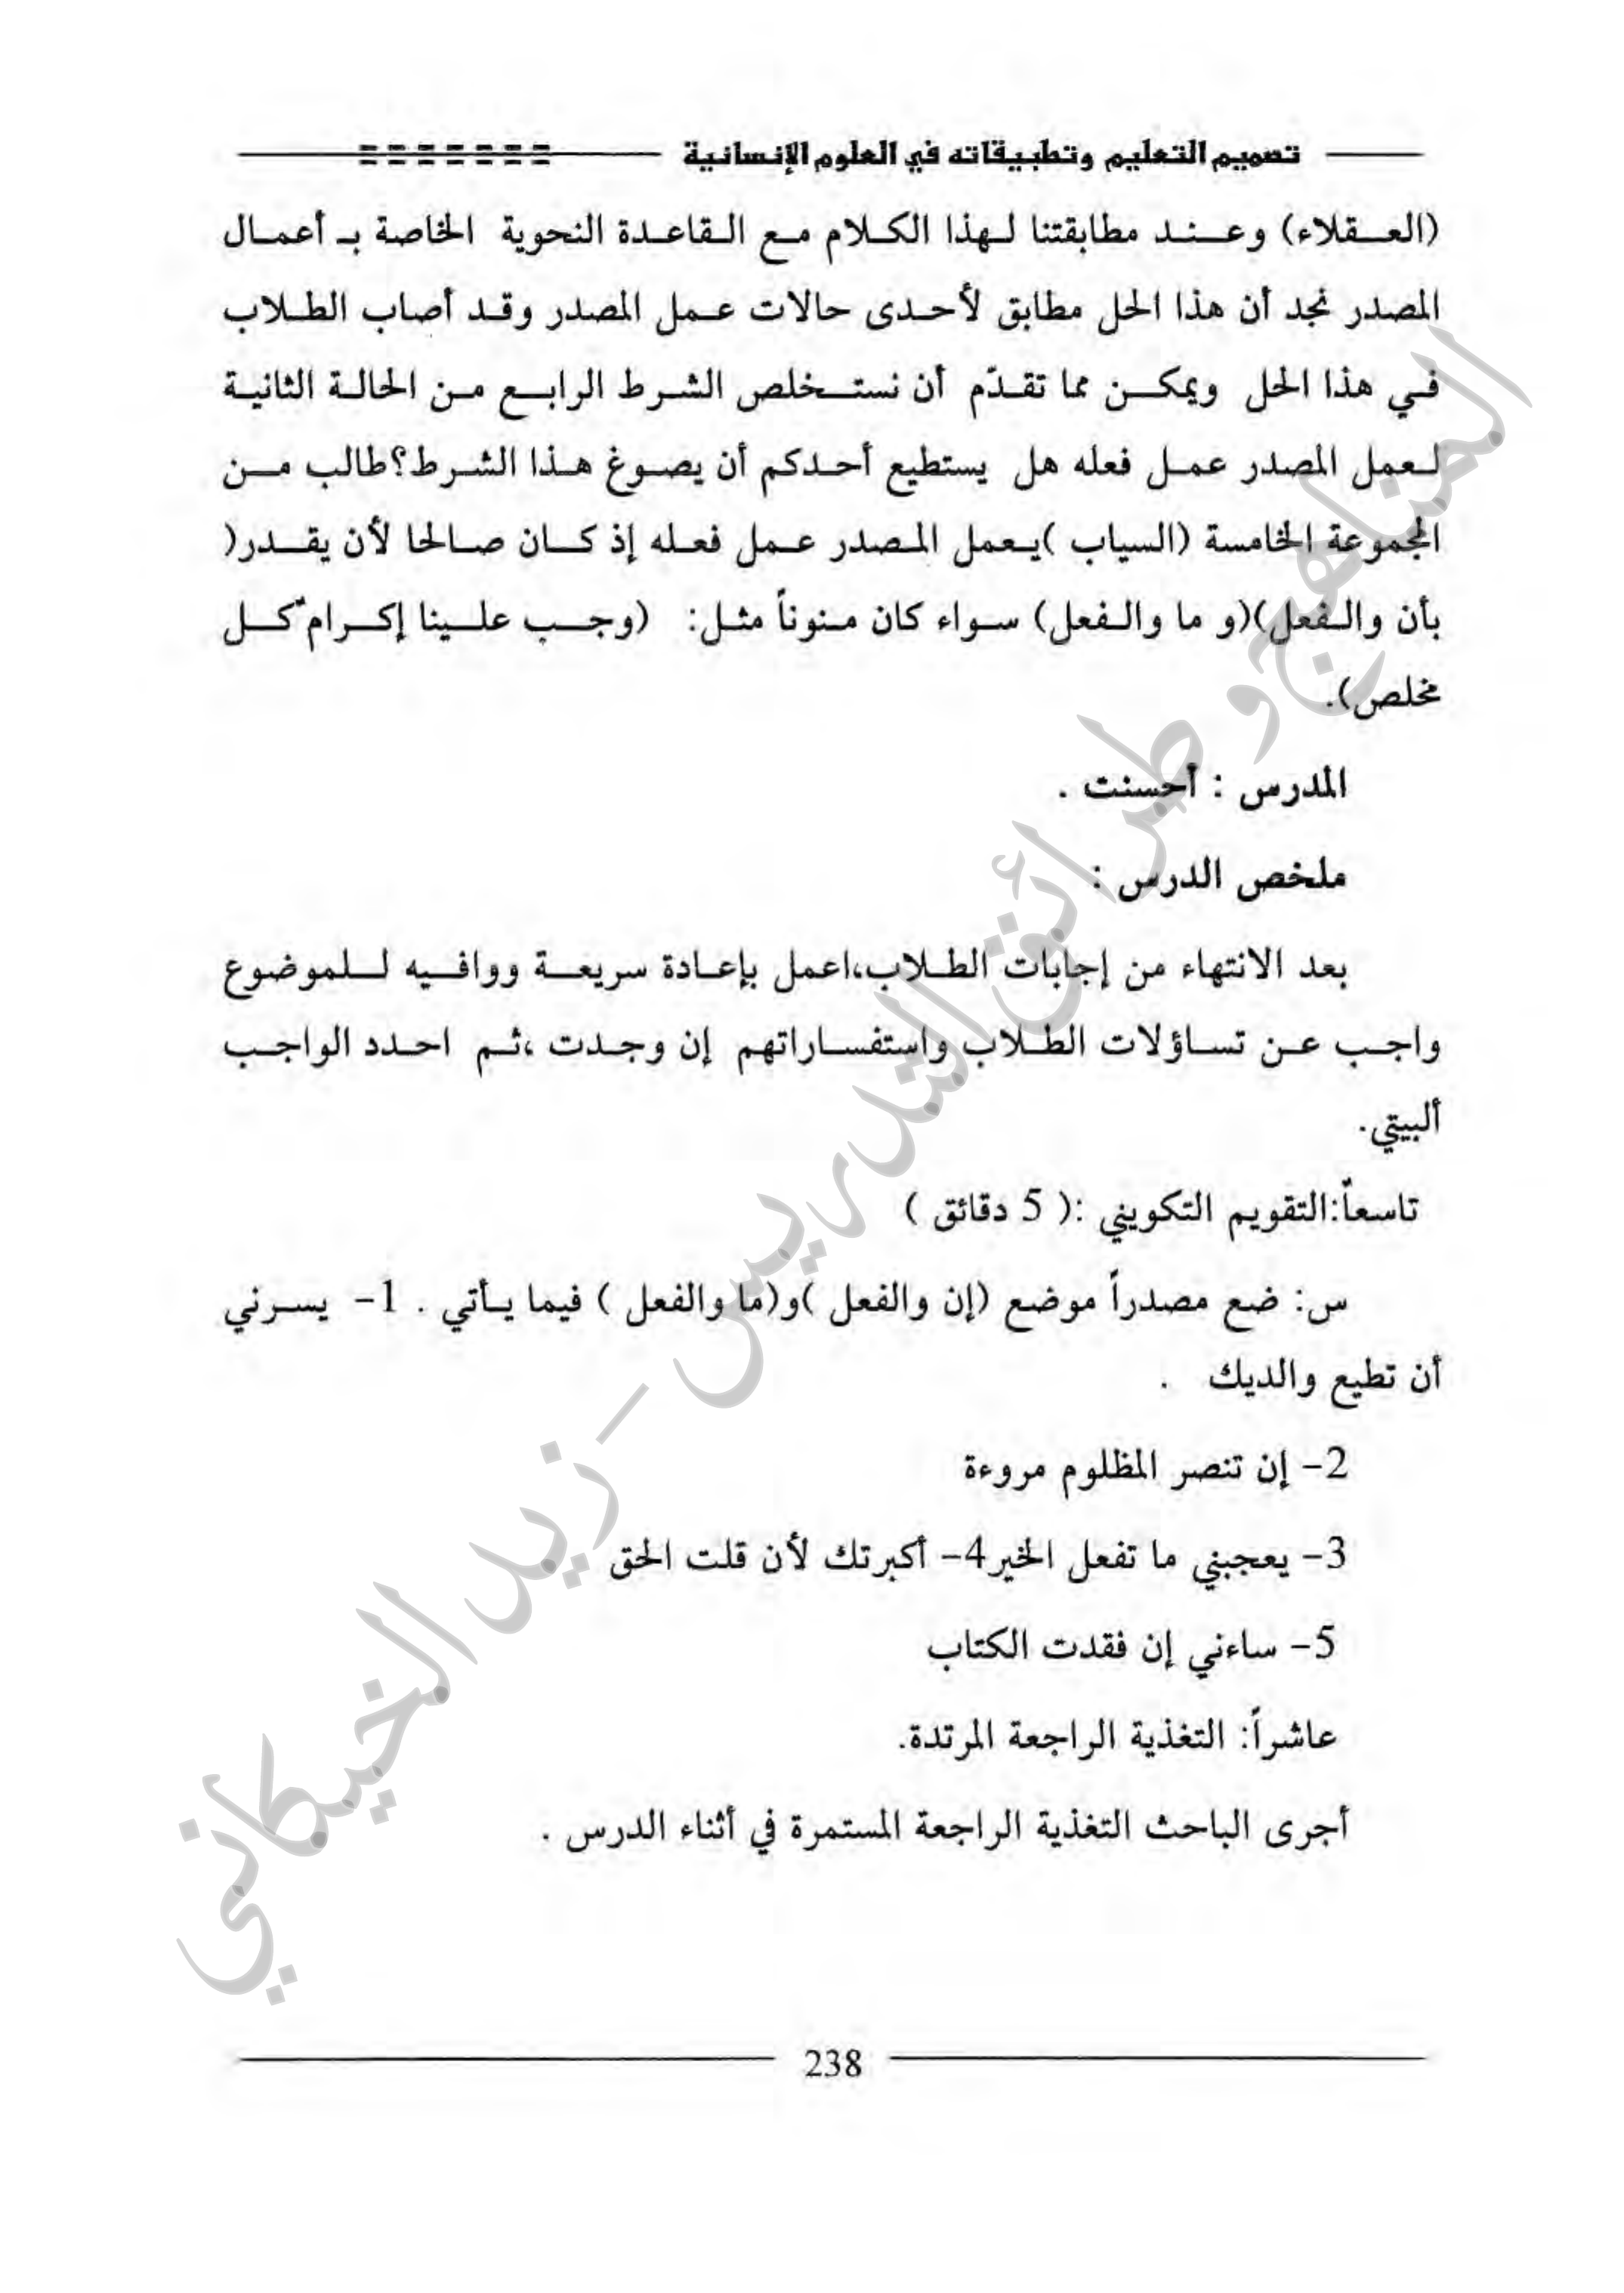 تصميم التعليم وتطبيقاته في العلوم الإنسانية
(العقلاء) وعند مطابقتنا لهذا الكلام مع القاعدة النحوية الخاصة بـ أعمال
المصدر نجد أن هذا الحل مطابق لأحدى حالات عمل المصدر وقد أصاب الطلاب
في هذا الحل ويمكن مما تقدّم أن نستخلص الشرط الرابع من الحالة الثانية
لعمل المصدر عمل فعله هل يستطيع أحدكم أن يصوغ هذا الشرط؟طالب من
المجموعة الخامسة (السياب )يعمل المصدر عمل فعله إذ كان صالحا لأن يقدر(
بأن والفعل)(و ما والفعل) سواء كان منوناً مثل: (وجب علينا إكرامٌ كل
مخلص).
المدرس : أحسنت .
ملخص الدرس :
بعد الانتهاء من إجابات الطلاب،اعمل بإعادة سريعة ووافيه للموضوع
واجب عن تساؤلات الطلاب واستفساراتهم إن وجدت ،ثم احدد الواجب
ألبيتي.
تاسعاً:التقويم التكويني :( 5 دقائق )
س: ضع مصدراً موضع (إن والفعل )و(ما والفعل ) فيما يأتي . 1- يسرني
أن تطيع والديك .
2- إن تنصر المظلوم مروءة
3- يعجبني ما تفعل الخير4- أكبرتك لأن قلت الحق
5- ساءني إن فقدت الكتاب
عاشراً: التغذية الراجعة المرتدة.
أجرى الباحث التغذية الراجعة المستمرة في أثناء الدرس .
238
المناهج وطرائق التدريس - زيد الخيكاني